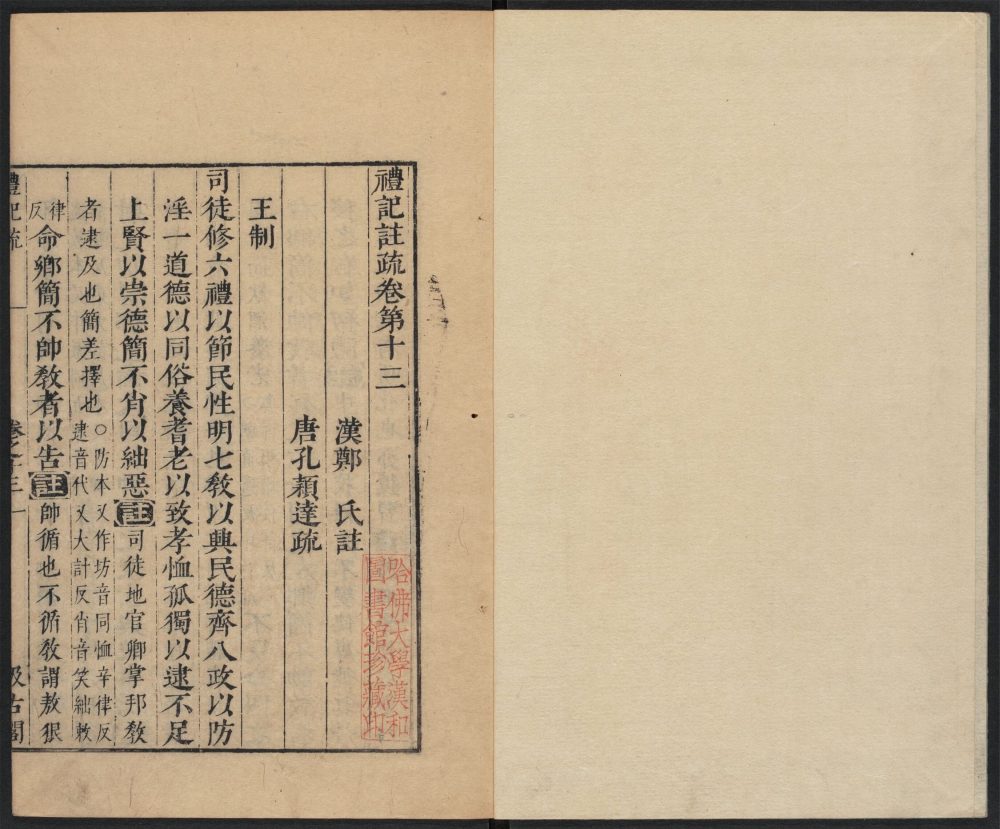 禮記註疏卷第十三
漢鄭 氏註
唐孔穎達疏
王制
司徒修六禮以節民性明七敎以興民德齊八政以防
淫一道德以同俗養耆老以致孝恤孤獨以逮不足
上賢以崇德簡不肖以絀惡註司徒地官卿掌邦敎
者逮及也簡差擇也○防本又作坊音同恤辛律反
逮音代又大計反肖音笑絀敕
律反命鄉簡不帥敎者以告註帥循也不循敎謂敖狠
禮記疏 卷之十三 一 汲古閣
哈佛大學漢和
圖書館珍藏印